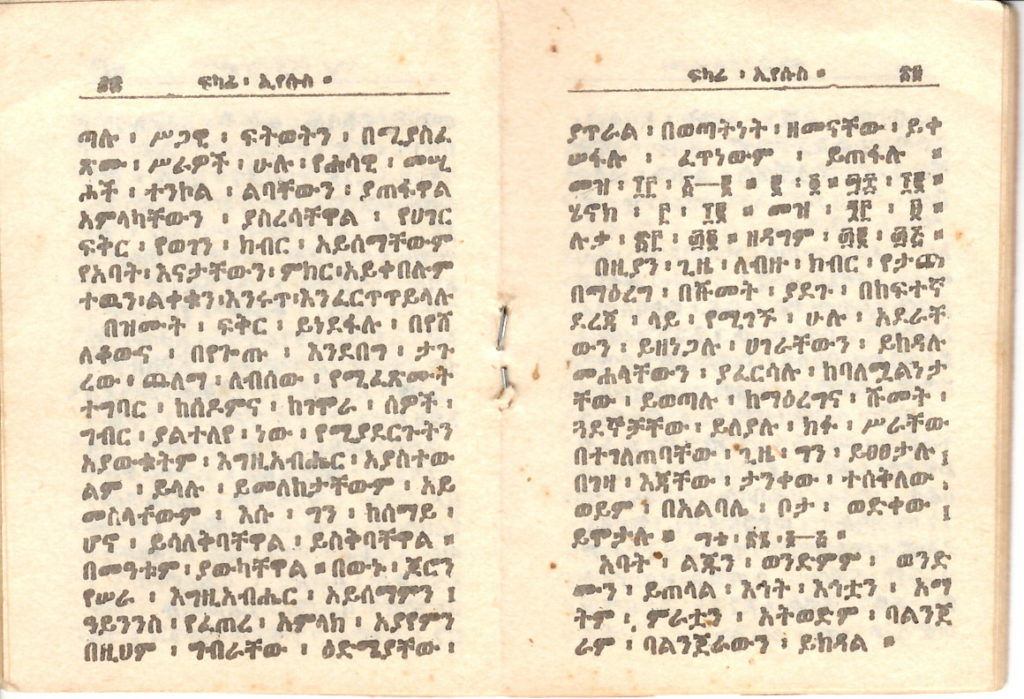 ፍካሬ ፡ ኢየሱስ ።
ጣሉ ፡ ሥጋዊ ፡ ፍትወትን ፡ በሚያስፈ
ጽሙ ፡ ሥራዎች ፡ ሁሉ ፡ የሐሳዊ ፡ መሢ
ሕች ፡ ተንኮል ፡ ልባቸውን ፡ ያጠፋዋል
አምላካቸውን ፡ ያስረሳቸዋል ፡ የሀገር
ፍቅር ፡ የወገን ፡ ክብር ፡ አይሰማቸውም
የአባት ፡ እናታቸውን ፡ ምክር ፡ አይቀበሉም
ተዉን ፡ ልቀቁን ፡ እንሩጥ ፡ እንፈርጥጥ ይላሉ
በዝሙት ፡ ፍቅር ፡ ይነደፋሉ ፡ በየሸ
ለቆውና ፡ በየጐጡ ፡ እንደበግ ፡ ታጉ
ረው ፡ ጨለማ ፡ ለብሰው ፡ የሚፈጽሙት
ተግባር ፡ ከሰዶምና ፡ ከገሞራ ፡ ሰዎች ፡
ግብር ፡ ያልተለየ ፡ ነው ፡ የሚያደርጉትን
አያውቁትም ፡ እግዚአብሔር ፡ አያስተው
ልም ፡ ይላሉ ፡ ይመለከታቸውም ፡ አይ
መስላቸውም ፡ እሱ ፡ ግን ፡ ከሰማይ ፡
ሆኖ ፡ ይሳለቅባቸዋል ፡ ይስቅባቸዋል ።
በመዓቱም ፡ ያውካቸዋል ። በውኑ ፡ ጆሮን
የሠራ ፡ እግዚአብሔር ፡ አይሰማምን ፤
ዓይንንስ ፡ የፈጠረ ፡ አምላክ ፡ አያየምን
በዚህም ፡ ግብራቸው ፡ ዕድሜያቸው ፡
ፍካሬ ፡ ኢየሱስ ።
ያጥራል ፡ በወጣትነት ፡ ዘመናቸው ፡ ይቀ
ሠፋሉ ፡ ፈጥነውም ፡ ይጠፋሉ ።
መዝ ፡
ሄኖክ ፡ መዝ ፡
ሉቃ ፡ ዘዳግም ፡
በዚያን ፡ ጊዜ ፡ ለብዙ ፡ ክብር ፡ የታጩ
በማዕረግ ፡ በሹመት ፡ ያደጉ ፡ በከፍተኛ
ደረጃ ፡ ላይ ፡ የሚገኙ ፡ ሁሉ ፡ አደራቸ
ውን ፡ ይዘነጋሉ ፡ ሀገራቸውን ፡ ይከዳሉ
መሐላቸውን ፡ ያፈርሳሉ ፡ ከባለሟልነታ
ቸው ፡ ይወጣሉ ፡ ከማዕረግና ፡ ሹመት ፡
ጓደኞቻቸው ፡ ይለያሉ ፡ ክፉ ፡ ሥራቸው
በተገለጠባቸው ፡ ጊዜ ፡ ግን ፡ ይፀፀታሉ ፤
በገዛ ፡ እጃቸው ፡ ታንቀው ፡ ተሰቅለው
ወይም ፡ በአልባሌ ፡ ቦታ ፡ ወድቀው ፤
ይሞታሉ ።
አባት ፡ ልጁን ፡ ወንድምም ፡ ወንድ
ሙን ፡ ይጠላል ፡ እኅት ፡ እኅቷን ፡ አማ
ትም ፡ ምራቷን ፡ አትወድም ፡ ባልንጀ
ራም ፡ ባልንጀራውን ፡ ይከዳል ።